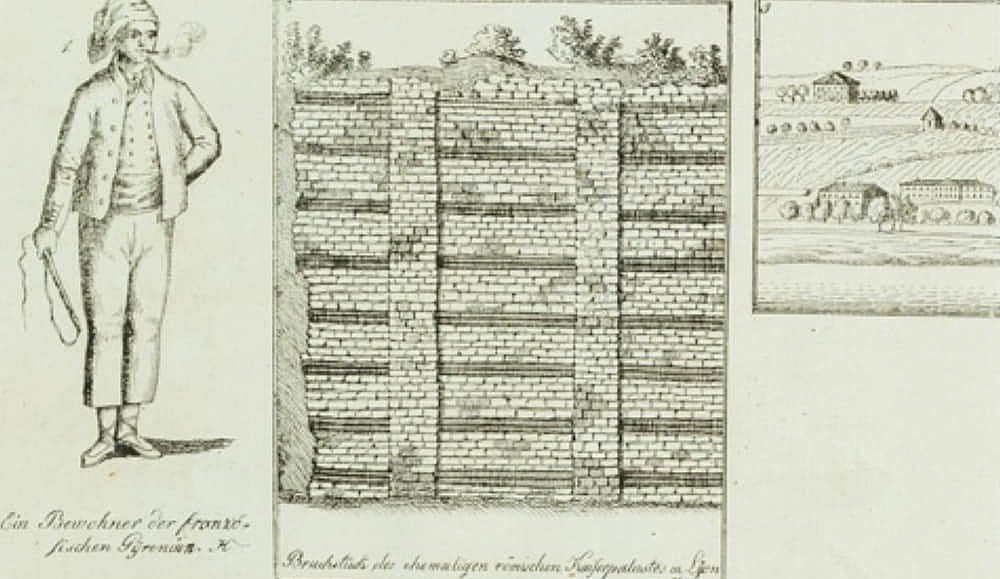 1.
Ein Bewohner der franzö-
sischen Pÿrenäen.
Bruchstück des ehemaligen römischen Kaiserpalastes in Lÿon
3